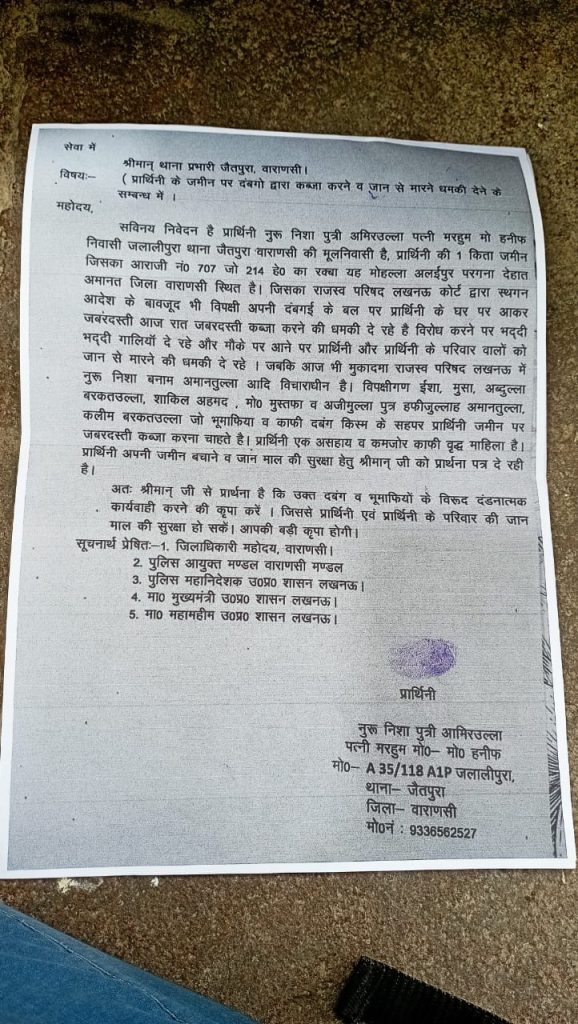 सेवा में
श्रीमान् थाना प्रभारी जैतपुरा, वाराणसी।
विषयः– ( प्रार्थिनी के जमीन पर दंबगो द्वारा कब्जा करने व जान से मारने धमकी देने के
सम्बन्ध में ।
महोदय,
सविनय निवेदन है प्रार्थिनी नुरू निशा पुत्री अमिरउल्ला पत्नी मरहुम मो हनीफ
निवासी जलालीपुरा थाना जैतपुरा वाराणसी की मूलनिवासी है, प्रार्थिनी की 1 किता जमीन
जिसका आराजी नं0 707 जो 214 हे0 का रक्बा यह मोहल्ला अलईपुर परगना देहात
अमानत जिला वाराणसी स्थित है। जिसका राजस्व परिषद लखनऊ कोर्ट द्वारा स्थगन
आदेश के बावजूद भी विपक्षी अपनी दबंगई के बल पर प्रार्थिनी के घर पर आकर
जबरदस्ती आज रात जबरदस्ती कब्जा करने की धमकी दे रहे है विरोध करने पर भद्दी
भद्दी गालियाँ दे रहे और मौके पर आने पर प्रार्थिनी और प्रार्थिनी के परिवार वालों को
जान से मारने की धमकी दे रहे । जबकि आज भी मुकादमा राजस्व परिषद लखनऊ में
नुरू निशा बनाम अमानतुल्ला आदि विचाराधीन है। विपक्षीगण ईशा, मुसा, अब्दुल्ला
बरकतउल्ला, शाकिल अहमद , मो0 मुस्तफा व अजीमुल्ला पुत्र हफीजुल्लाह अमानतुल्ला,
कलीम बरकतउल्ला जो भूमाफिया व काफी दबंग किस्म के सहपर प्रार्थिनी जमीन पर
जबरदस्ती कब्जा करना चाहते है। प्रार्थिनी एक असहाय व कमजोर काफी वृद्ध माहिला है।
प्रार्थिनी अपनी जमीन बचाने व जान माल की सुरक्षा हेतु श्रीमान् जी को प्रार्थना पत्र दे रही
है।
अतः श्रीमान् जी से प्रार्थना है कि उक्त दबंग व भूमाफियों के विरूद दंडनात्मक
कार्यवाही करने की कृपा करें । जिससे प्रार्थिनी एवं प्रार्थिनी के परिवार की जान
माल की सुरक्षा हो सकें। आपकी बड़ी कृपा होगी।
सूचनार्थ प्रेषितः–1. जिलाधिकारी महोदय, वाराणसी।
2. पुलिस आयुक्त मण्डल वाराणसी मण्डल
3. पुलिस महानिदेशक उ0प्र0 शासन लखनऊ।
4. मा0 मुख्यमंत्री उ0प्र0 शासन लखनऊ।
5. मा0 महामहीम उ0प्र0 शासन लखनऊ।
प्रार्थिनी
नुरू निशा पुत्री आमिरउल्ला
पत्नी मरहुम मो0– मो0 हनीफ
मो0– A 35/118 A1P जलालीपुरा,
थाना– जैतपुरा
जिला– वाराणसी
मो0नं : 9336562527